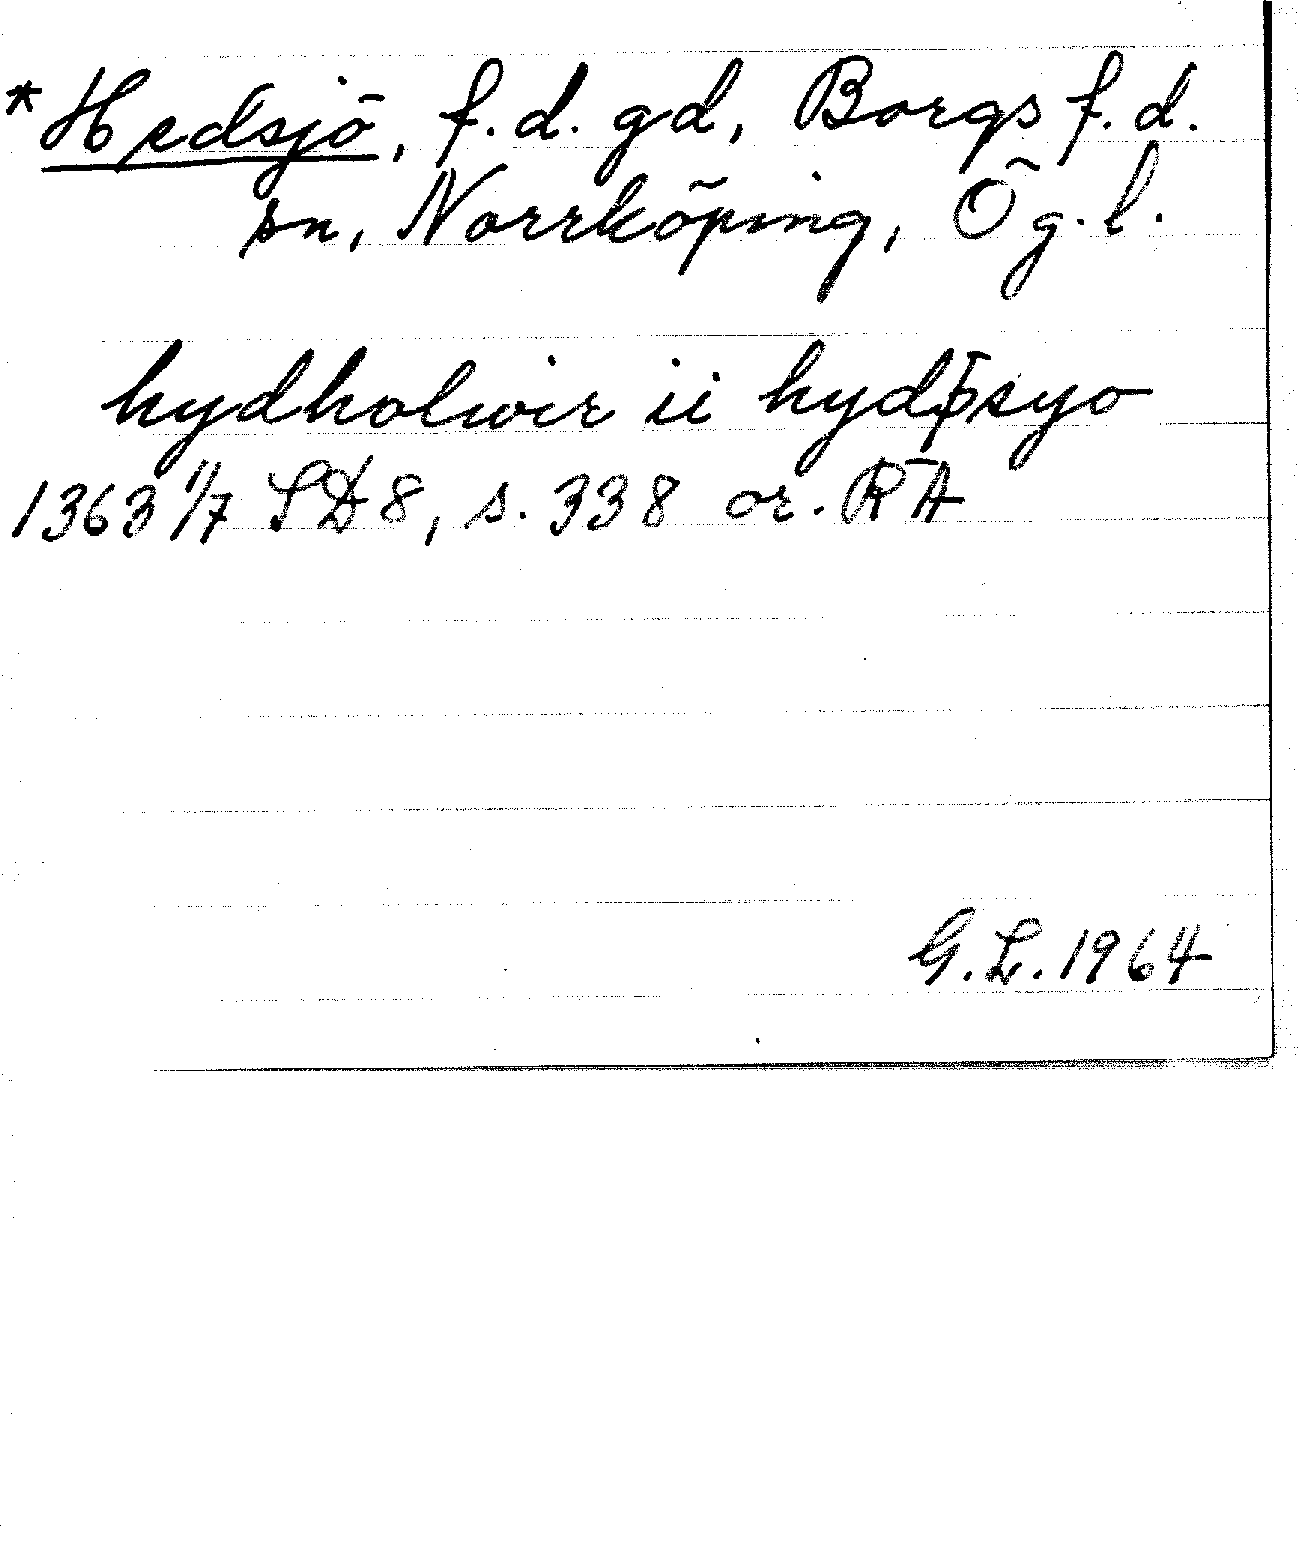 *Hedsjö, f.d. gd, Borgs f.d.
sn, Norrköping, Ög.l.
hydholwir ii hydþsyo
1363 1/7 SD 8, s. 338 or. RA
G.L. 1964